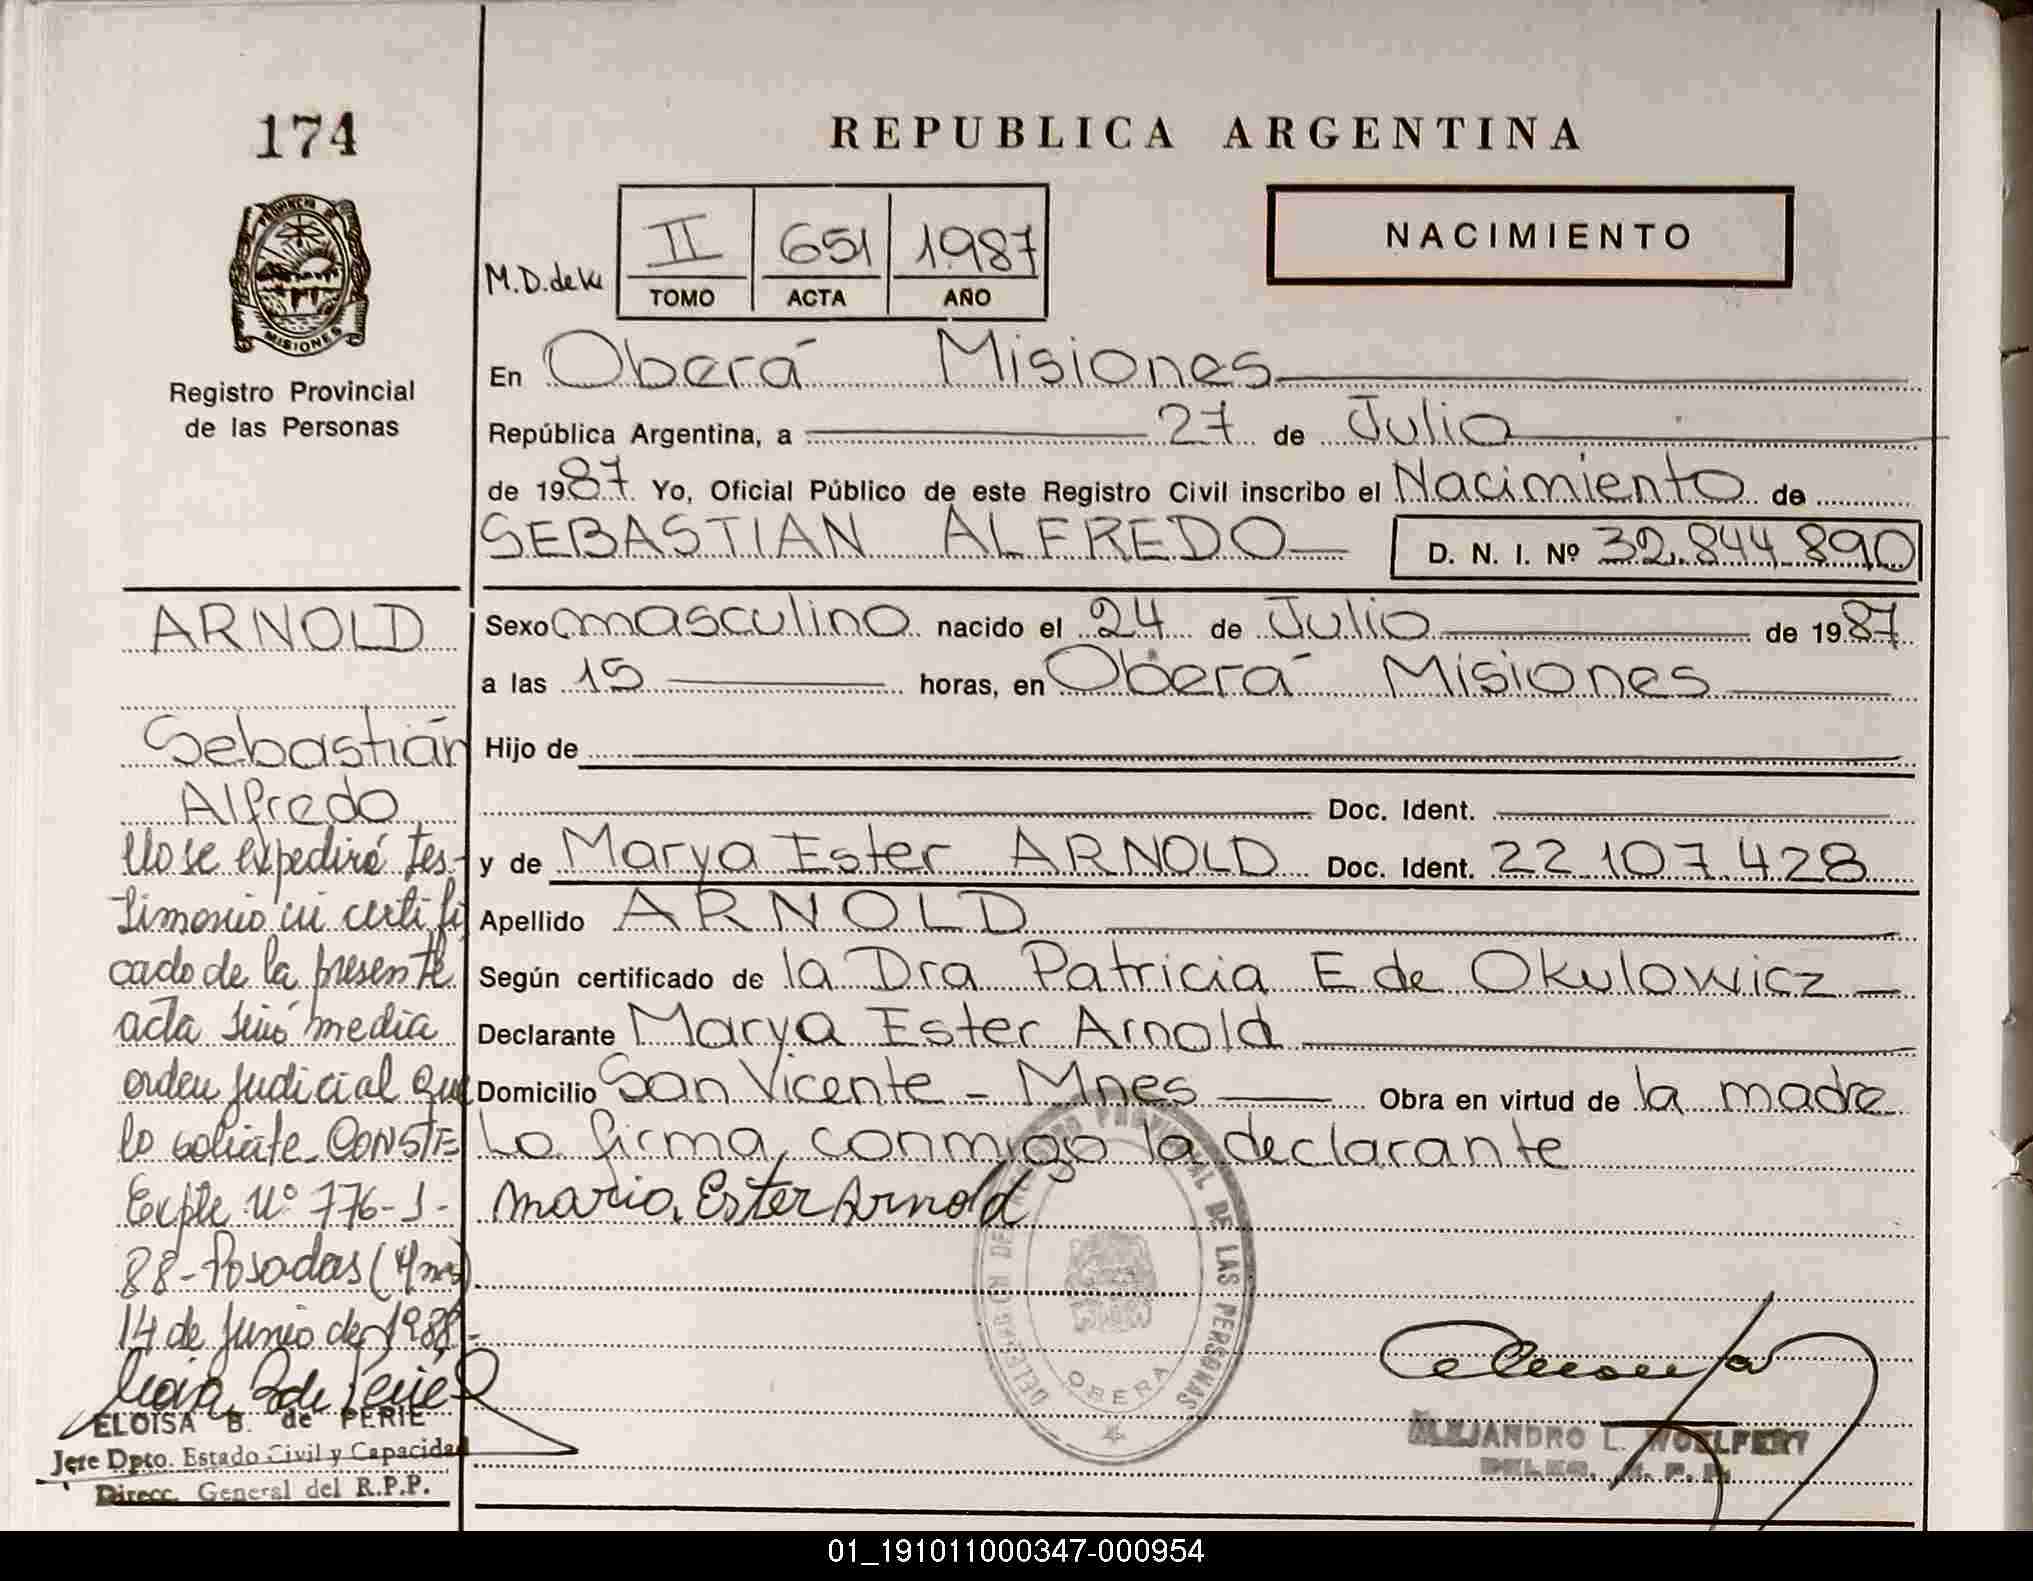 174
PROVINCIA DE
MISIONES
Registro Provincial
de las Personas
REPUBLICA ARGENTINA
NACIMIENTO
M.D. de
II 651 1987
TOMO ACTA AÑO
En Oberá Misiones
República Argentina, a 27 de Julio
de 1987. Yo, Oficial Público de este Registro Civil inscribo el Nacimiento de
SEBASTIAN ALFREDO D. N. I. Nº 32.844.890
Sexo masculino nacido el 24 de Julio de 1987
a las 15 horas, en Oberá Misiones
Hijo de
Doc. Ident.
y de Marya Ester ARNOLD Doc. Ident. 22.107.428
Apellido ARNOLD
Según certificado de la Dra Patricia E de Okulowicz
Declarante Marya Ester Arnold
Domicilio San Vicente - Mnes Obra en virtud de la madre
Lo firma conmigo la declarante
Maria Ester Arnold
ARNOLD
Sebastián
Alfredo
No se expedirá tes-
timonio ni certifi
cado de la presente
acta sinó media
orden judicial que
lo solicite. CONSTE
Expte Nº 776-J-
88-Posadas (Mnes)
14 de Junio de 1988-
ELOISA B. de PERIE
Jefe Dpto. Estado Civil y Capacidad
Direcc. General del R.P.P.
DELEGACION DEL REGISTRO PROVINCIAL DE LAS PERSONAS
OBERA
ALEJANDRO L. WOELFERT
01_191011000347-000954